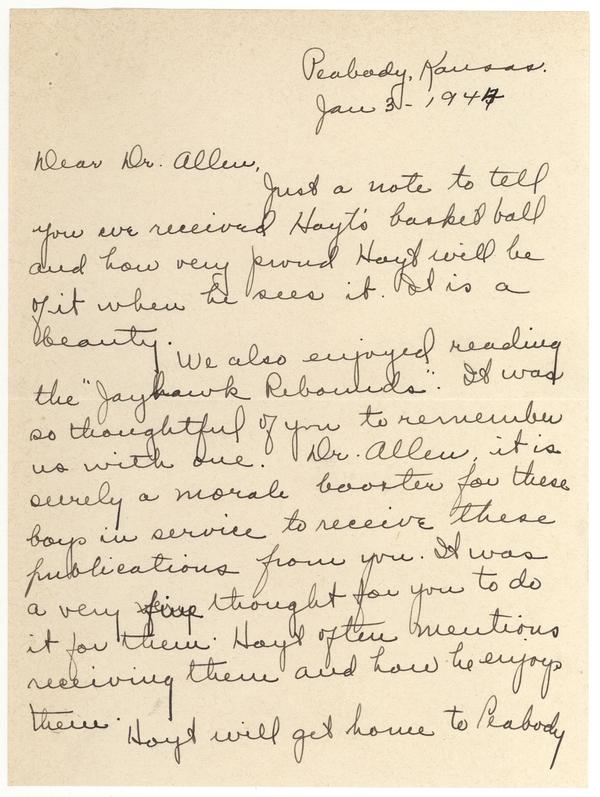 Peabody, Kansas.
Jan 3 - 1944
Dear Dr. Allen,
Just a note to tell
you we received Hoyt's basket ball
and how very proud Hoyt will be
of it when he sees it. It is a
beauty.
We also enjoyed reading
the "Jayhawk Rebounds". It was
so thoughtful of you to remember
us with one. Dr. Allen, it is
surely a morale booster for these
boys in service to receive these
publications from you. It was
a very fine thought for you to do
it for them. Hoyt often mentions
receiving them and how he enjoys
them.
Hoyt will get home to Peabody